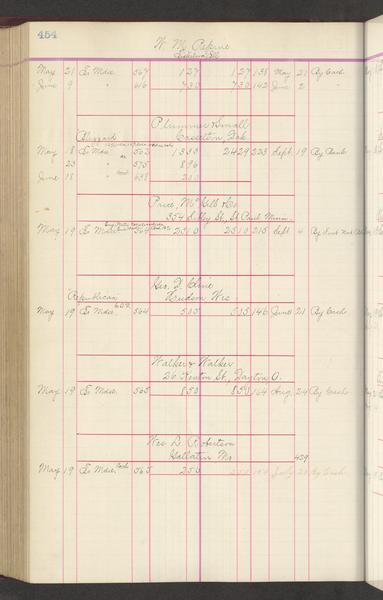 454
W. M.
May 21 To Mdse. 567 127 127 138 May 21 By Cash
June 9 " 616 730 730 142 June 2 "
Plummer & Small
Casselton, Dak
Blizzard
May 18 To Mdse. 562 1333 2429 223 Sept. 19 By Bank
23 " 575 896
June 18 " 638 200
Price, McGill & Co
354 Sibley St, St Paul Minn.
May 19 To Mdse. 564 2510 2510 215 Sept 4 By
Geo. F. Kline
Hudson Wis
Republican
May 19 To Mdse. 564 535 535 146 June 21 By Cash
Walker & Walker
26 Fenton St, Dayton O.
May 19 To Mdse. 565 850 850 164 Aug. 24 By Cash
Wes. D. Robertson
Gallatin Mo
459
May 19 To Mdse. 565 250 250 July 20 By Cash